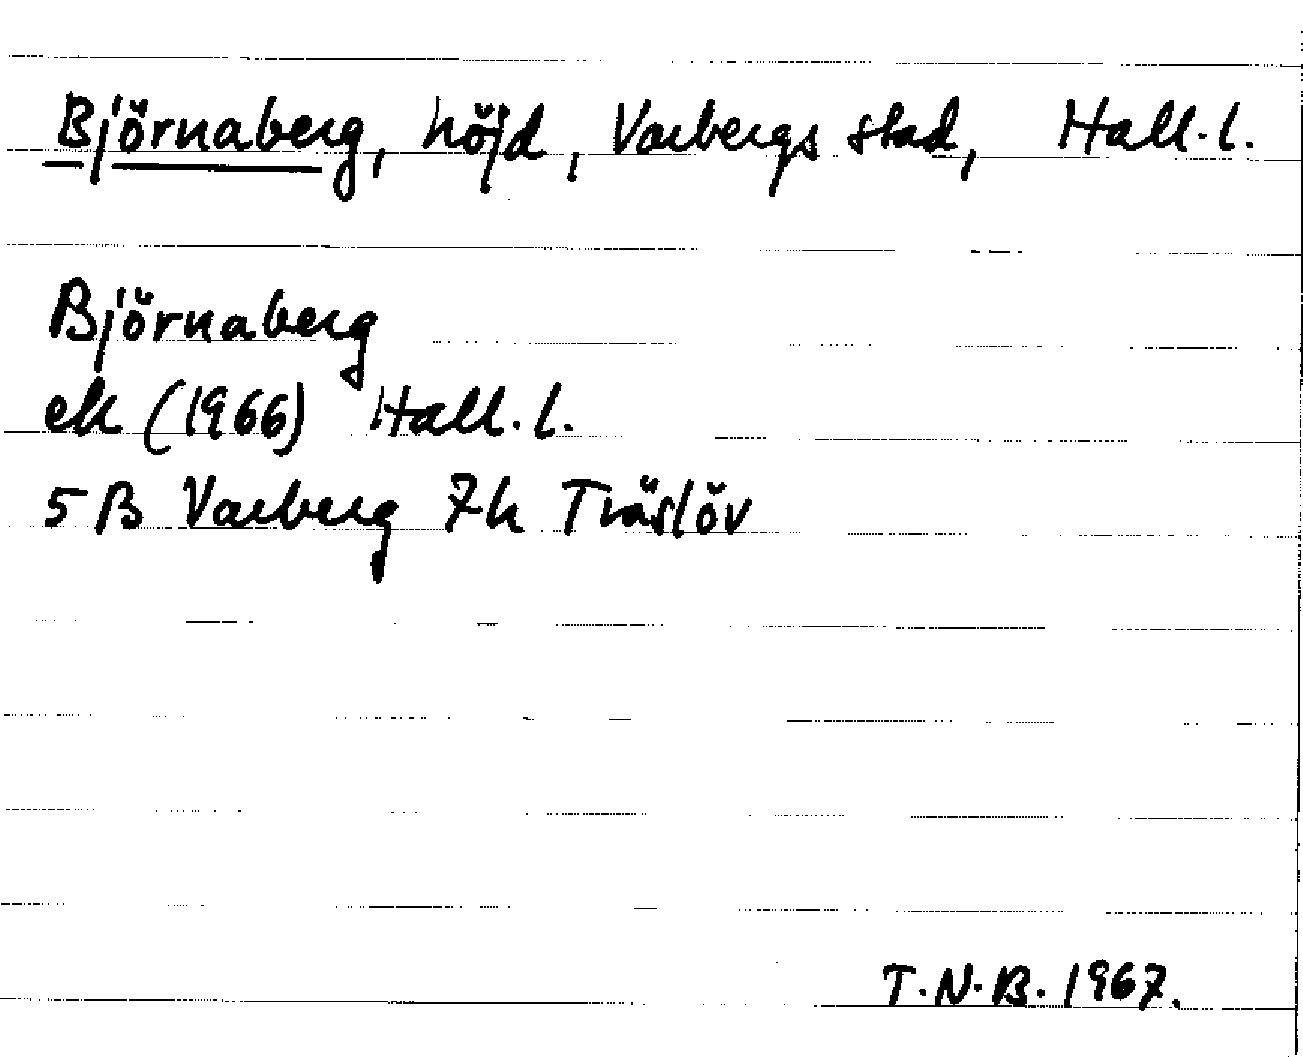 Björnaberg, höjd, Varbergs stad, Hall.l.
Björnaberg
ek (1966) Hall.l.
5B Varberg 7h Träslöv
T.N.B. 1967.